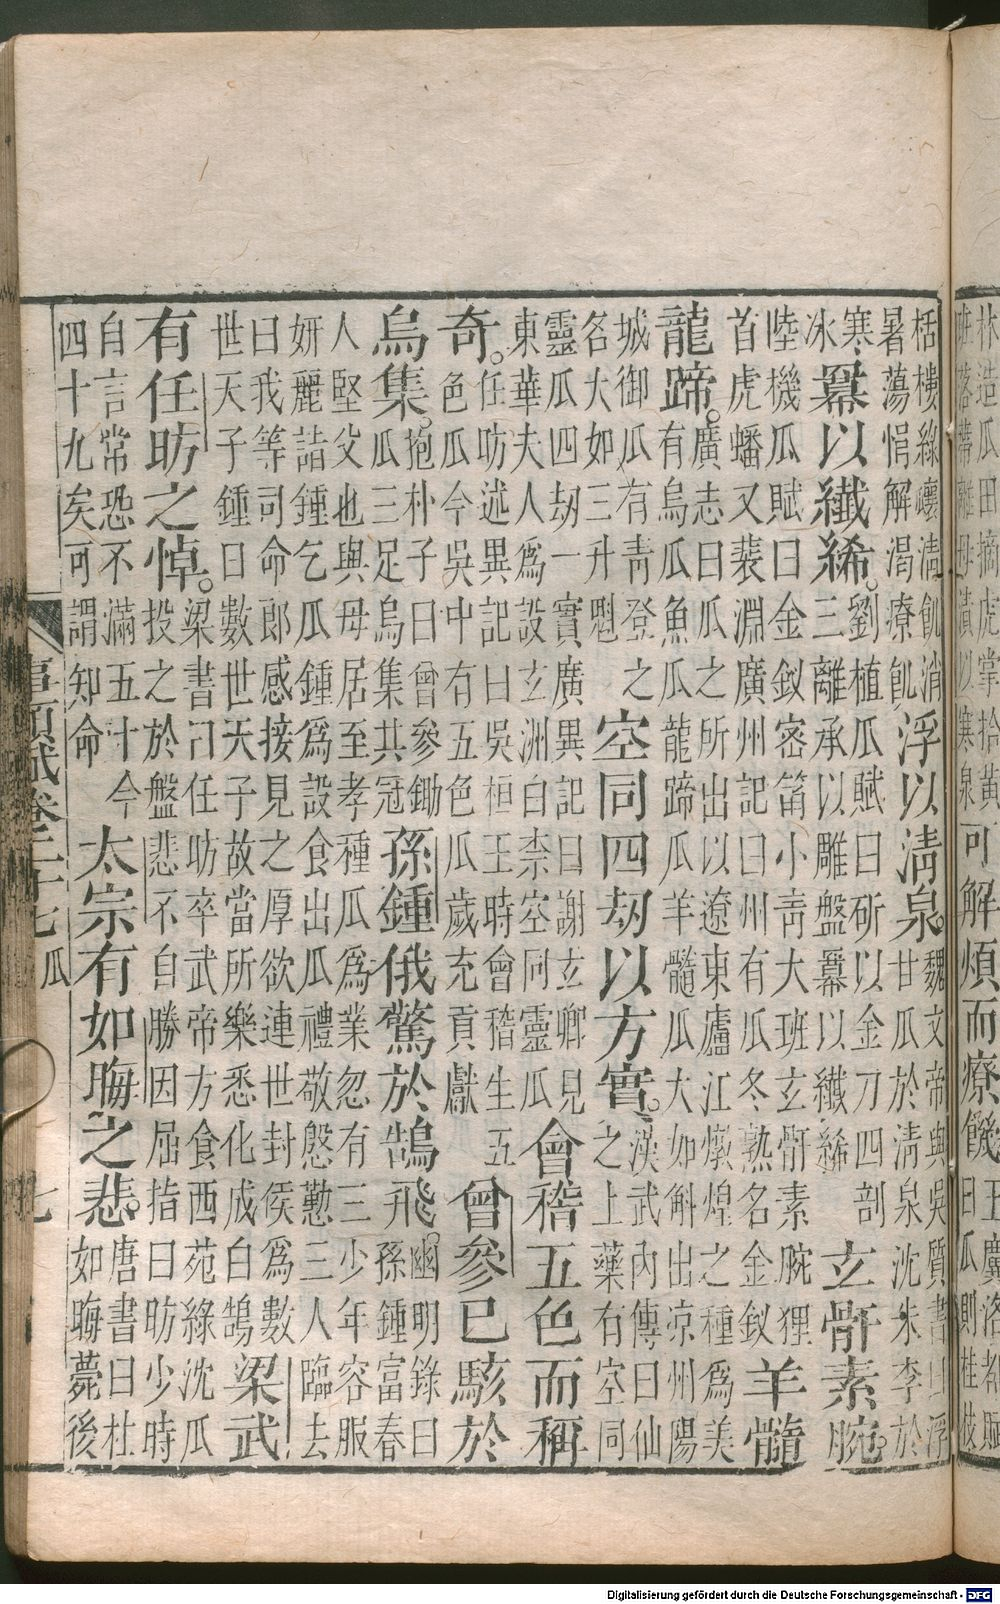 林造瓜田摘虎掌拾黃
以寒泉
可解煩而療饑
曰瓜則桂枝
栝樓綠瓤清飢消
暑蕩悁解渴療飢
浮以清泉。
魏文帝與吳質書曰浮
甘瓜於清泉沈朱李於
寒
冰
羃以纖絺。
劉植瓜賦曰斫以金刀四剖
三離承以雕盤羃以纖絺
玄骭素腕。
陸機瓜賦曰金釵密筩小青大班玄骭素腕狸
首虎蟠又裴淵廣州記曰州有瓜冬熟名金釵
羊髓
龍蹄。
廣志曰瓜之所出以遼東廬江燉煌之種為美
有烏瓜魚瓜龍蹄瓜羊髓瓜大如斛出凉州陽
城御瓜有青登之
名大如三升魁
空同四劫以方實。
漢武內傳曰仙
之上藥有空同
靈瓜四劫一實廣異記曰謝玄卿見
東華夫人為設玄洲白柰空同靈瓜
會稽五色而稱
奇。
任昉述異記曰吳桓王時會稽生五
色瓜今吳中有五色瓜歲充貢獻
曾參已駭於
烏集。
抱朴子曰曾參鋤
瓜三足烏集其冠
孫鍾俄驚於鵠飛。
幽明錄曰
孫鍾富春
人堅父也與母居至孝種瓜為業忽有三少年容服
妍麗詣鍾乞瓜鍾為設食出瓜禮敬慇懃三人臨去
曰我等司命郎感接見之厚欲連世封侯為數
世天子鍾曰數世天子故當所樂悉化成白鵠
梁武
有任昉之悼。
梁書曰任昉卒武帝方食西苑綠沈瓜
投之於盤悲不自勝因屈指曰昉少時
自言常恐不滿五十今
四十九矣可謂知命
太宗有如晦之悲。
唐書曰杜
如晦薨後
事類賦卷二十七 瓜
七
Digitalisierung gefördert durch die Deutsche Forschungsgemeinschaft - DFG